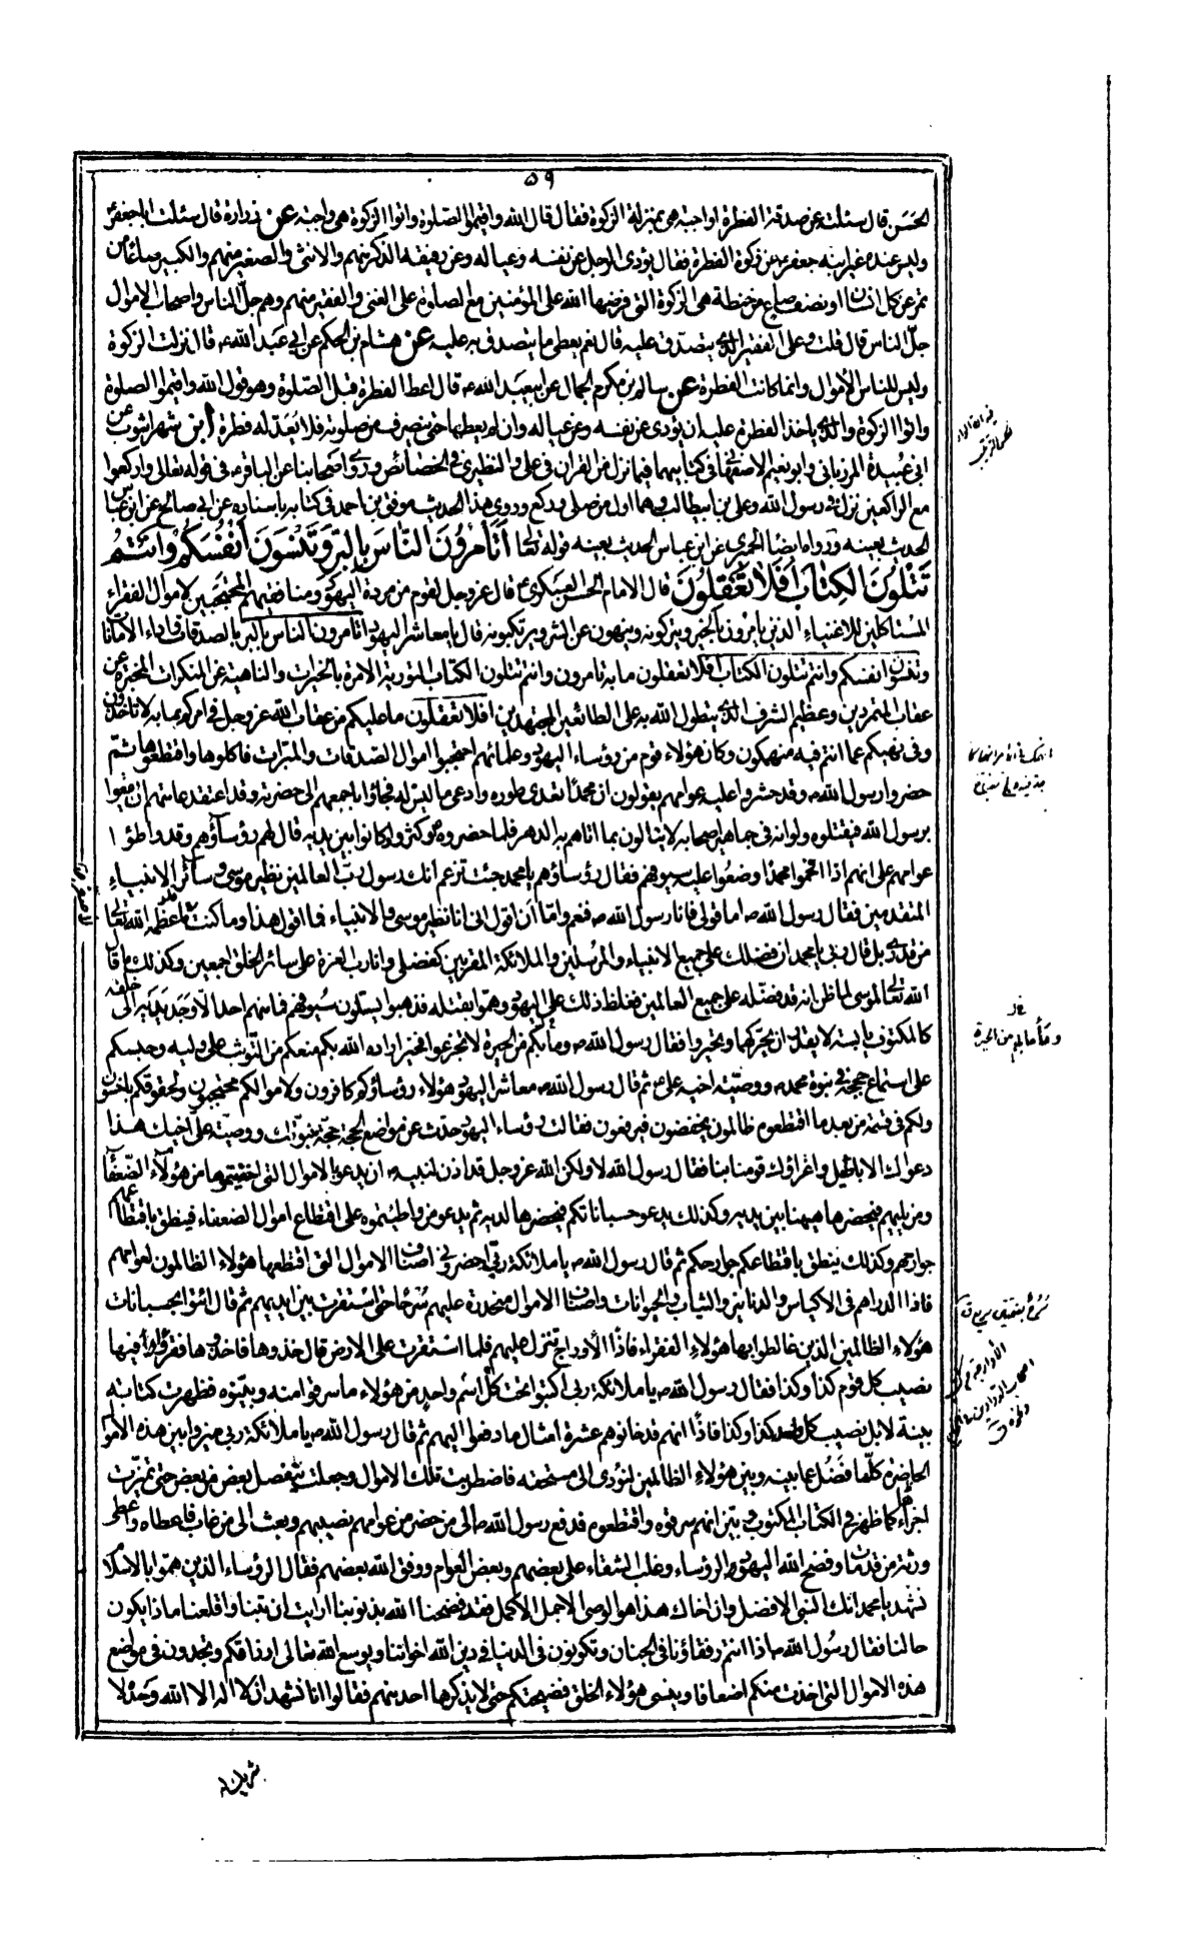 ٥٩
الحسن قال سئلته عن صدقة الفطرة اواجبة هى بمنزلة الزكوة فقال قال الله واقيموا الصلوة واتوا الزكوة هى واجبة عن زرارة قال سئلت اباجعفر
وليس عنده غير ابنه جعفر عن زكوة الفطرة فقال يؤدى الرجل عن نفسه وعياله وعن رقيقه الذكر منهم والانثى والصغير منهم والكبير صاعا من
تمر عن كل انسان او نصف صاع من حنطة هى الزكوة التى فرضها الله على المؤمنين مع الصلوة على الغنى والفقير منهم وهم جل الناس واصحاب الاموال
جل الناس قال قلت وعلى الفقير الذى يتصدق عليه قال نعم يعطى ما يتصدق به عليه عن هشام بن الحكم عن ابى عبد الله ع قال نزلت الزكوة
وليس للناس الاموال وانما كانت الفطرة عن سالم بن مكرم الجمال عن ابيعبد الله ع قال اعط الفطرة قبل الصلوة وهو قول الله واقيموا الصلوة
واتوا الزكوة والذى ياخذ الفطرة عليه ان يؤدى عن نفسه وعن عياله وان لم يعطها حتى ينصرف من صلوته فلا يعد له فطرة ابن شهراشوب عن
ابى عبيدة المرزبانى وابونعيم الاصفهانى فى كتابيهما فيما نزل من القران فى على والنظيرى فى الخصائص وروى اصحابنا عن الباقر ع فى قوله تعالى واركعوا
مع الراكعين نزلت فى رسول الله وعلى بن ابيطالب وهما اول من صلى وركع وروى هذا الحديث موفق بن احمد فى كتابه باسناده عن ابى صالح عن ابن عباس
الحديث بعينه ورواه ايضا الحبرى عن ابن عباس الحديث بعينه قوله تعالى اَتَاْمُرُونَ النّاسَ بِالبِرِّ وَتَنْسَوْنَ اَنْفُسَكُمْ وَاَنْتُمْ
تَتْلُونَ الكِتابَ اَفَلا تَعْقِلُونَ قال الامام الحسن العسكرى ع قال عز وجل لقوم من مردة اليهود ومنافقيهم المحتجبين لاموال الفقراء
المستاكلين للاغنياء الذين يامرون بالخير ويتركونه وينهون عن الشر ويرتكبونه قال يا معاشر اليهود اتامرون الناس بالبر بالصدقات واداء الامانات
وتنسون انفسكم وانتم تتلون الكتاب افلا تعقلون ما به تامرون وانتم تتلون الكتاب التورية الامرة بالخيرات والناهية عن المنكرات المخبرة عن
عقاب المتمردين وعظيم الشرف الذى يتطول الله به على الطائعين المجتهدين افلا تعقلون ما عليكم من عقاب الله عز وجل فى امركم بما به لا تاخذون
وفى نهيكم عما انتم فيه منهمكون وكان هؤلاء قوم من رؤساء اليهود وعلمائهم احتجبوا اموال الصدقات والمبرات فاكلوها واقتطعوها ثم
حضروا رسول الله ص وقد حشروا عليه عوامهم يقولون ان محمدا تعدى طوره وادعى ما ليس له فجاؤا باجمعهم الى حضرته وقد اعتقد عامتهم ان يقعوا
برسول الله فيقتلوه ولو انه فى جماهير اصحابه لا يبالون بما اتاهم به الدهر فلما حضروه وكثروا وكانوا بين يديه قال لهم رؤسآؤهم وقد واطئوا
عوامهم على انهم اذا افحموا محمدا وضعوا عليه سيوفهم فقال رؤساؤهم يا محمد جئت تزعم انك رسول رب العالمين نظير موسى وسائر الانبياء
المتقدمين فقال رسول الله ص اما قولى فانا رسول الله ص فنعم واما ان اقول انى انا نظير موسى والانبياء فما اقول هذا وما كنت لاصغر ما عظمه الله تعالى
من قدرى بل قال ربى يا محمد ان فضلك على جميع الانبياء والمرسلين والملائكة المقربين كفضلى وانا رب العزة على سائر الخلق اجمعين وكذلك ما قال
الله تعالى لموسى لما ظن انه قد فضله على جميع العالمين فغلظ ذلك على اليهود وهموا بقتله فذهبوا يسلون سيوفهم فما منهم احد الا وجد يديه الى خلفه
كالمكتوف يابسة لا يقدر ان يحركهما وتحيروا فقال رسول الله ص وما بكم من الحيرة لا تجزعوا فخير اراده الله بكم منعكم من التوثب على وليه وحبسكم
على استماع حججه فى نبوة محمد ص ووصية اخيه على ع ثم قال رسول الله ص معاشر اليهود هؤلاء رؤساؤكم كافرون ولاموالكم محتجبون ولحقوقكم باخسون
ولكم فى قسمة من بعد ما اقتطعوه ظالمون يخفضون فيرفعون فقالت رؤساء اليهود حدث عن مواضع الحجة حجة نبوتك ووصية على اخيك هذا
دعواك الاباطيل واغراؤك قومنا بنا فقال رسول الله لا ولكن الله عز وجل قد اذن لنبيه ص ان يدعو بالاموال التى اختنتموها من هؤلاء الضعفآء
ومن يليهم فيحضرها هيهنا بين يديه وكذلك يدعو حسباناتكم فيحضرها لديه ثم يدعو من واطئتموه على اقتطاع اموال الضعفاء فينطق باقتطاعهم
جوارحهم وكذلك ينطق باقتطاعكم جوارحكم ثم قال رسول الله ص يا ملائكة ربى احضرونى اصناف الاموال التى اقتطعها هؤلاء الظالمون لعوامهم
فاذا الدراهم فى الاكياس والدنانير والثياب والحيوانات واصناف الاموال منحدرة عليهم سرحا حتى استقرت بين ايديهم ثم قال ائتوا بحسبانات
هؤلاء الظالمين الذين غالطوا بها هؤلاء الفقراء فاذا الادراج تنزل عليهم فلما استقرت على الارض قال خذوها فاخذوها فقرؤا فيها
نصيب كل قوم كذا وكذا فقال رسول الله ص يا ملائكة ربى اكتبوا تحت كل اسم واحد من هؤلاء ما سرقوا منه وبينوه فظهرت كتابته
بينة لا بل نصيب كل واحد كذا وكذا فاذا انهم قد خانوهم عشرة امثال ما دفعوا اليهم ثم قال رسول الله ص يا ملائكة ربى ميزوا بين هذه الاموال
الحاضرة كلما فضل عما بينه وبين هؤلاء الظالمين لتؤدى الى مستحقه فاضطربت تلك الاموال وجعلت ينفصل بعض من بعض حتى تميزت
اجزاء كما ظهر فى الكتاب المكتوب وبين انهم سرقوه واقتطعوه فدفع رسول الله ص الى من حضر من عوامهم نصيبهم وبعث الى من غاب فاعطاه واعطى
ورثة من قد مات وفضح الله اليهود والرؤساء وغلب الشقاء على بعضهم وبعض العوام ووفق الله بعضهم فقال الرؤساء الذين هموا بالاسلام
نشهد يا محمد انك النبى الافضل وان اخاك هذا هو الوصى الاجل الاكمل فقد فضحنا الله بذنوبنا ارايت ان تبنا واقلعنا ماذا يكون
حالنا فقال رسول الله ص اذا انتم رفقاؤنا فى الجنان وتكونون فى الدنيا فى دين الله اخواننا ويوسع الله تعالى ارزاقكم وتجدون فى مواضع
هذه الاموال التى اخذت منكم اضعافا وينسى هؤلاء الخلق فضيحتكم حتى لا يذكرها احد منهم فقالوا انا نشهد ان لا اله الا الله وحده لا
شريك له